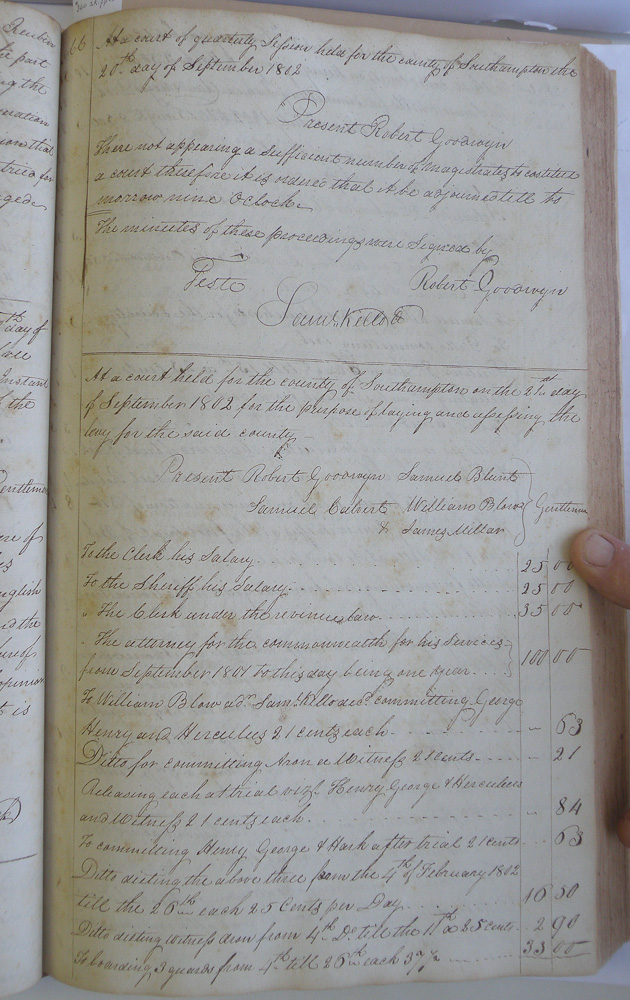 66 At a court of quarterly Session held for the county of Southampton the
20th day of September 1802
Present Robert Goodwyn
There not appearing a sufficient number of magistrates to constitute
a court therefore it is ordered that it be adjourned till to
morrow nine Oclock
The minutes of these proceedings were signed by
Teste Robert Goodwyn
Saml. Kello
At a court held for the county of Southampton on the 21st day
of September 1802 for the purpose of laying and assessing the
levy for the said county
Present Robert Goodwyn Samuel Blunt
Samuel Calvert William Blow Gentlemen
& James Millar
To the Clerk his Salary 25 00
To the Sheriff his Salary 25 00
The Clerk under the revenue law 35 00
The attorney for the commonwealth for his services
from September 1801 to this day being one year 100 00
To William Blow adr. Saml. Kello decd. committing George
Henry and Hercules 21 cents each 63
Ditto for committing Aron a Witness 21 cents 21
Releasing each at trial vizt. Henry George & Hercules
and Witness 21 cents each 84
To committing Henry George & Hark after trial 21 cents 63
Ditto dieting the above three from the 4th of February 1802
till the 26th each 25 Cents per Day 16 50
Ditto dieting witness Aron from 4th Do. till the 11th @ 25 cents 2 90
To boarding 3 guards from 4th till 26th each 33 00